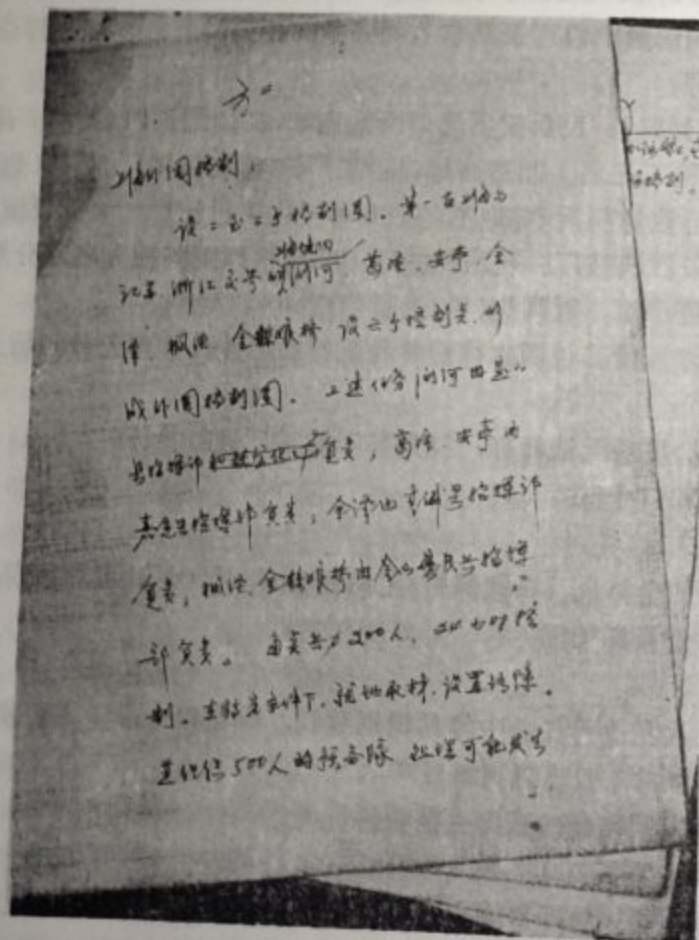 方二
上海外围控制。
设二至三个控制圈。第一在上海与
江苏、浙江交界 浏河 葛隆、安亭、金
泽、枫泾、金丝娘桥 设六个控制点，形
成外围控制圈。上述任务浏河由宝山
县指挥部 负责，葛隆、安亭由
嘉定县指挥部负责，金泽由青浦县指挥部
负责，枫泾、金丝娘桥由金山县民兵指挥
部负责。每点兵力200人，24小时控
制。在特定条件下，就地取材，设置路障。
并组织500人的预备队 处理可能发生